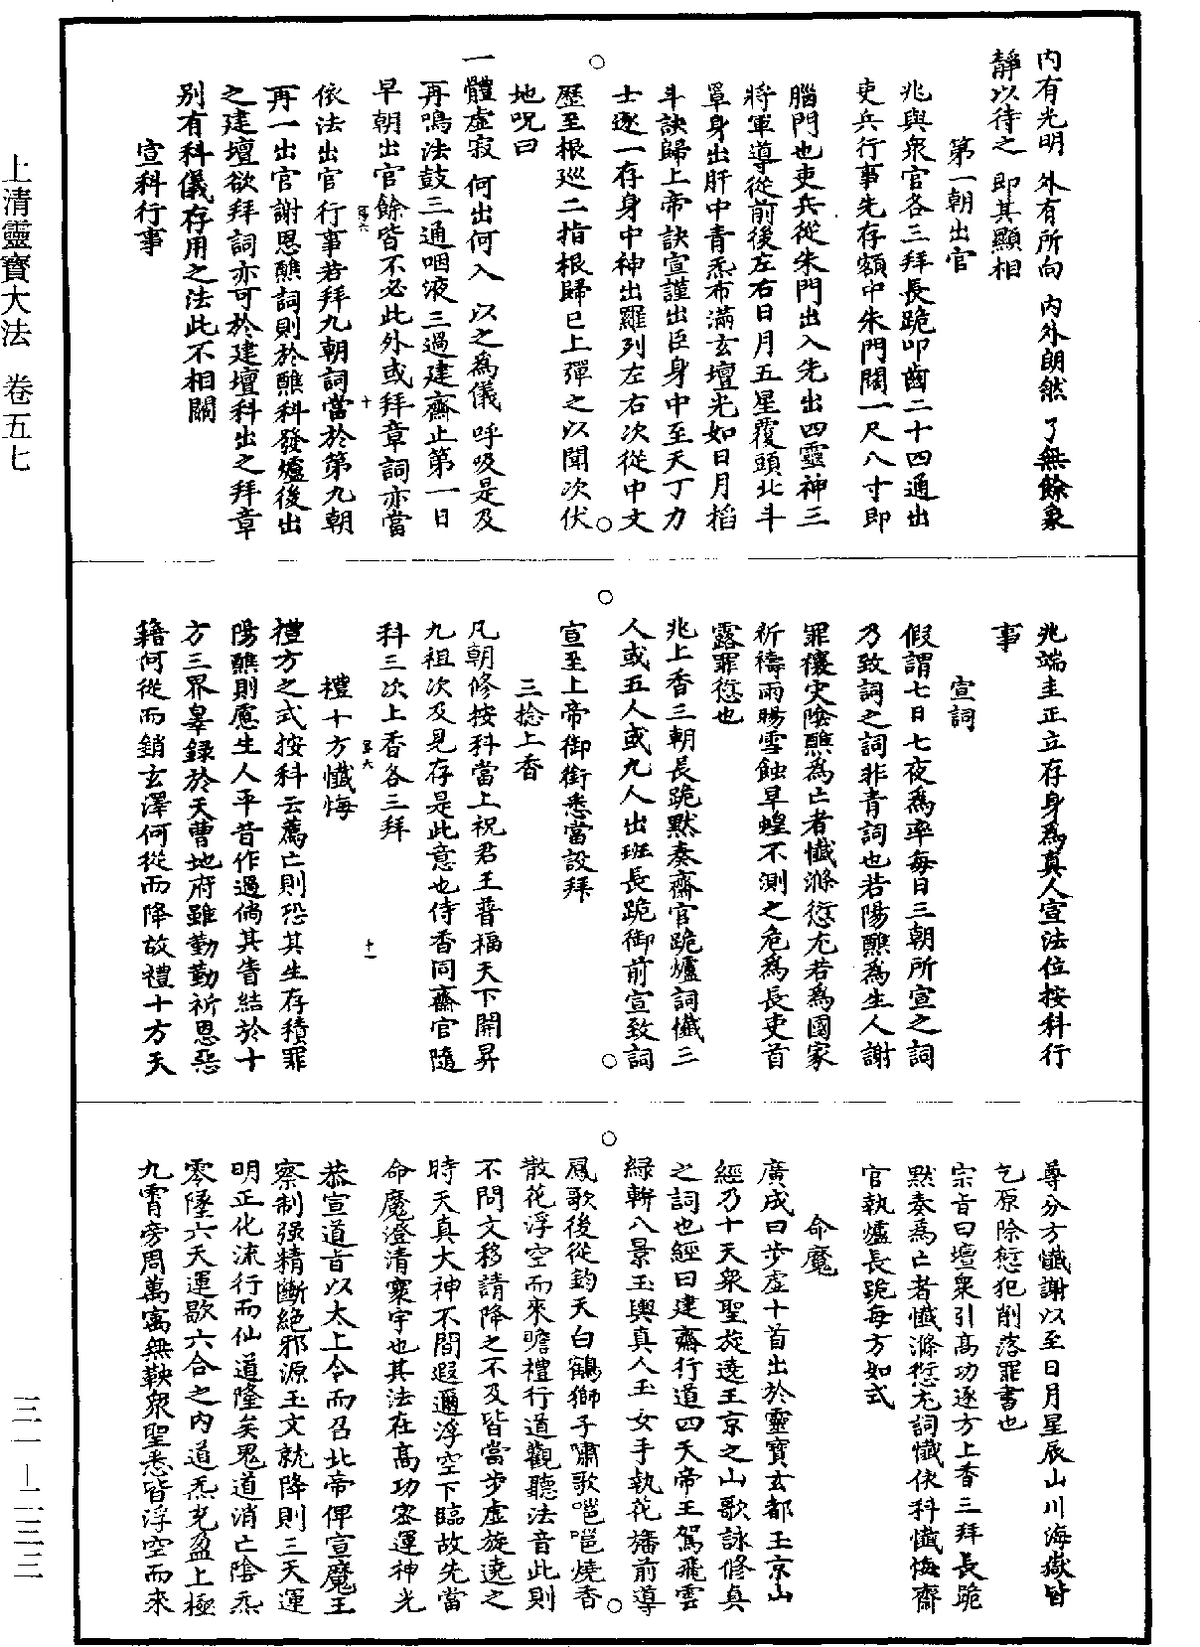 上清靈寶大法　卷五七
三一－二三三
内有光明　外有所向　内外朗然　了無餘衆
靜以待之　即其顯相
第一朝出官
兆與衆官各三拜長跪叩齒二十四通出
吏兵行事先存額中朱門闊一尺八寸即
腦門也吏兵從朱門出入先出四靈神三
將軍導從前後左右日月五星覆頭北斗
罩身出肝中青炁布滿玄壇光如日月掐
斗訣歸上帝訣宣謹出臣身中至天丁力
士逐一存身中神出羅列左右次從中文
歷至根巡二指根歸巳上彈之以聞次伏
地呪曰
一體虛寂　何出何入　以之爲儀　呼吸是及
再鳴法鼓三通咽液三過建齋止第一日
早朝出官餘皆不必此外或拜章詞亦當
五六　十
依法出官行事若拜九朝詞當於第九朝
再一出官謝恩醮詞則於醮科發爐後出
之建壇欲拜詞亦可於建壇科出之拜章
别有科儀存用之法此不相關
宣科行事
兆端圭正立存身爲真人宣法位按科行
事
宣詞
假謂七日七夜爲率每日三朝所宣之詞
乃致詞之詞非青詞也若陽醮爲生人謝
罪禳灾陰醮爲亡者懺滌愆尤若爲國家
祈禱雨暘雪蝕旱蝗不測之危爲長吏首
露罪愆也
兆上香三朝長跪默奏齋官跪爐詞懺三
人或五人或九人出班長跪御前宣致詞
宣至上帝御銜悉當設拜
三捻上香
凡朝修按科當上祝君王普福天下開昇
九祖次及見存是此意也侍香同齋官隨
科三次上香各三拜
五六　十一
禮十方懺悔
禮方之式按科云薦亡則恐其生存積罪
陽醮則慮生人平昔作過倘其眚結於十
方三界辠録於天曹地府雖勤勤祈恩惡
籍何從而銷玄澤何從而降故禮十方天
尊分方懺謝以至日月星辰山川海嶽皆
乞原除愆犯削落罪書也
宗旨曰壇衆引高功逐方上香三拜長跪
默奏爲亡者懺滌愆尤詞懺侠科懺悔齋
官執爐長跪每方如式
命魔
廣成曰步虛十首出於靈寶玄都玉京山
經乃十天衆聖旋遶玉京之山歌詠修真
之詞也經曰建齋行道四天帝王駕飛雲
緑軿八景玉輿真人玉女手執花旛前導
鳳歌後從鈞天白鶴獅子嘯歌嗈嗈燒香
散花浮空而來瞻禮行道觀聽法音此則
不問文移請降之不及皆當步虛旋遶之
時天真大神不間遐邇浮空下臨故先當
命魔澄清寰宇也其法在高功密運神光
恭宣道旨以太上令而召北帝俾宣魔王
察制强精斷絶邪源玉文就降則三天運
明正化流行而仙道隆矣鬼道消亡陰炁
零墜六天運歇六合之内道炁充盈上極
九霄旁周萬㝢無鞅衆聖悉皆浮空而來